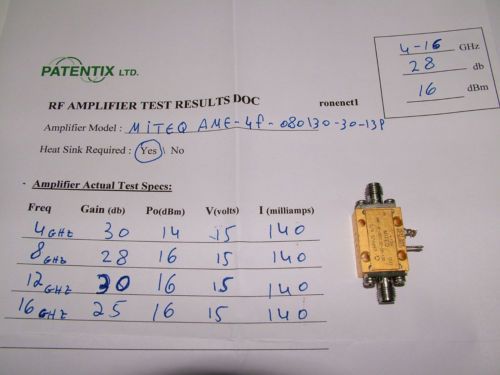 4-16 GHz
28 db
16 dBm
PATENTIX LTD.
RF AMPLIFIER TEST RESULTS DOC ronenct1
Amplifier Model : MITEQ AMF-4F-080130-30-13P
Heat Sink Required : Yes \ No
- Amplifier Actual Test Specs:
Freq Gain (db) Po(dBm) V(volts) I (milliamps)
4GHZ 30 14 15 140
8GHZ 28 16 15 140
12GHZ 30 16 15 140
16GHZ 25 16 15 140
MITEQ